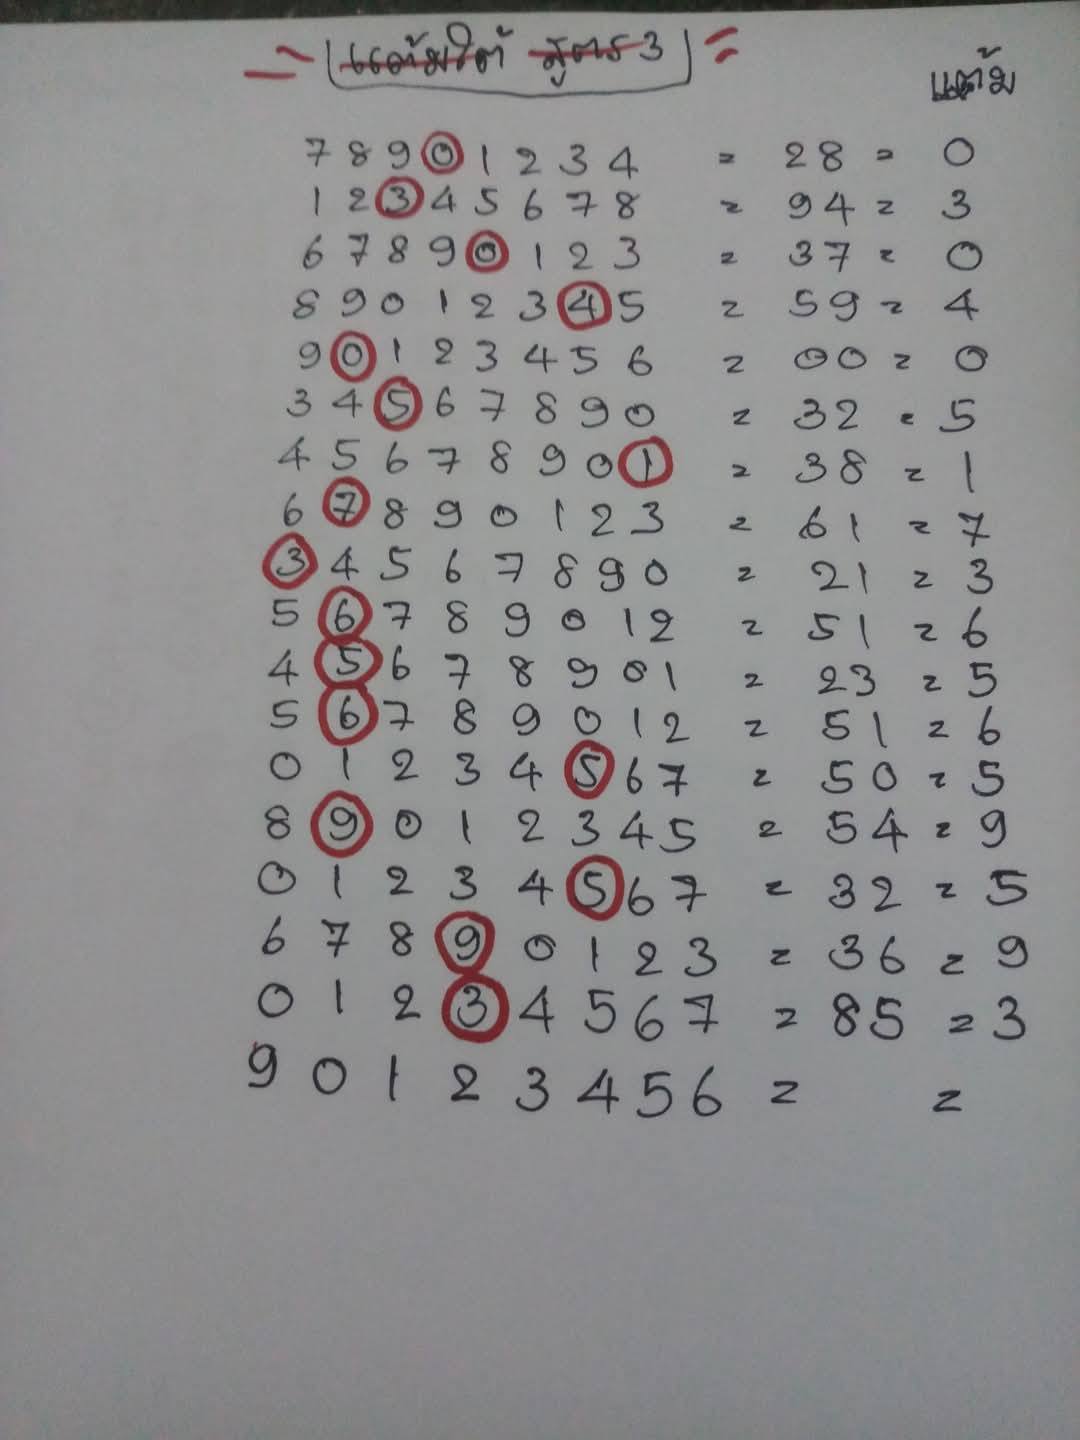 แต้มใต้ สูตร 3
แต้ม
7 8 9 0 1 2 3 4 = 28 = 0
1 2 3 4 5 6 7 8 = 94 = 3
6 7 8 9 0 1 2 3 = 37 = 0
8 9 0 1 2 3 4 5 = 59 = 4
9 0 1 2 3 4 5 6 = 00 = 0
3 4 5 6 7 8 9 0 = 32 = 5
4 5 6 7 8 9 0 1 = 38 = 1
6 7 8 9 0 1 2 3 = 61 = 7
3 4 5 6 7 8 9 0 = 21 = 3
5 6 7 8 9 0 1 2 = 51 = 6
4 5 6 7 8 9 0 1 = 23 = 5
5 6 7 8 9 0 1 2 = 51 = 6
0 1 2 3 4 5 6 7 = 50 = 5
8 9 0 1 2 3 4 5 = 54 = 9
0 1 2 3 4 5 6 7 = 32 = 5
6 7 8 9 0 1 2 3 = 36 = 9
0 1 2 3 4 5 6 7 = 85 = 3
9 0 1 2 3 4 5 6 = =